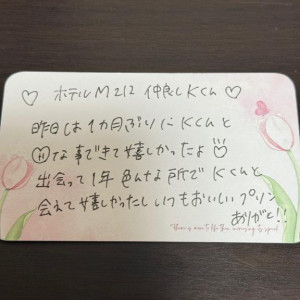 ♡ ホテルM212 仲良しKくん ♡
昨日は1カ月ぶりにKくんと
Hな事できて嬉しかったよ
出会って1年 色んな所でKくんと
会えて嬉しかったし いつもおいしいプリン
ありがと!!
There is more to life than increasing its speed